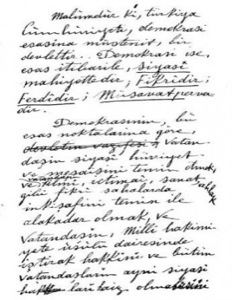 Malûmdur ki, türkiya
Cümhuriyete, demokrasi
esasına müstenit, bir
devlettir. Demokrasi ise,
esas itibarile, siyasî
mahiyettedir; Fikridir;
Ferdidir; Müsavatperva-
dir.
Demokrasinin, bu
esas noktalarına göre,
Vatan-
daşın siyasî hürriyet
ve mesaisini temin etmek,
ve ilmî, içtimaî, sanat
gibi fikrî sahalarda
inkişafını temin ile
alâkadar olmak, ve
Vatandaşın, Millî hakimi-
yete usulü dairesinde
iştirak hakkını ve bütün
vatandaşların ayni siyasî
ları haiz olmalarını